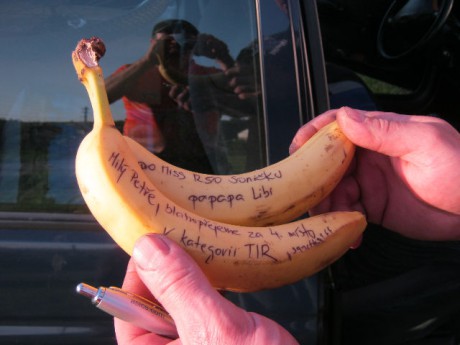 pro Miss RSO Soničku
od papa Libi
Milý Petře, blahopřejeme za 4. místo
v kategorii TIR,